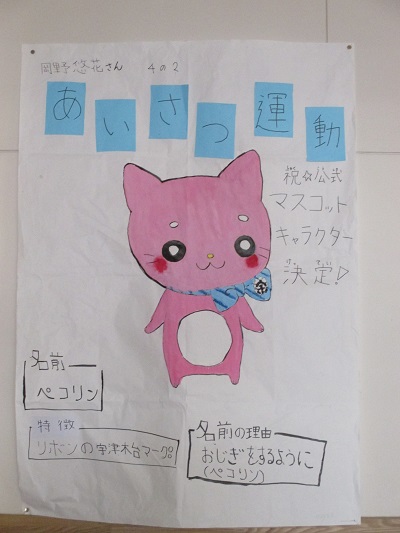 岡野悠花さん 4の2
あいさつ運動
祝☆公式
マスコット
キャラクター
決定!
名前
ペコリン
特徴
リボンの宇津木台マーク。
名前の理由
おじぎをするように
(ペコリン)